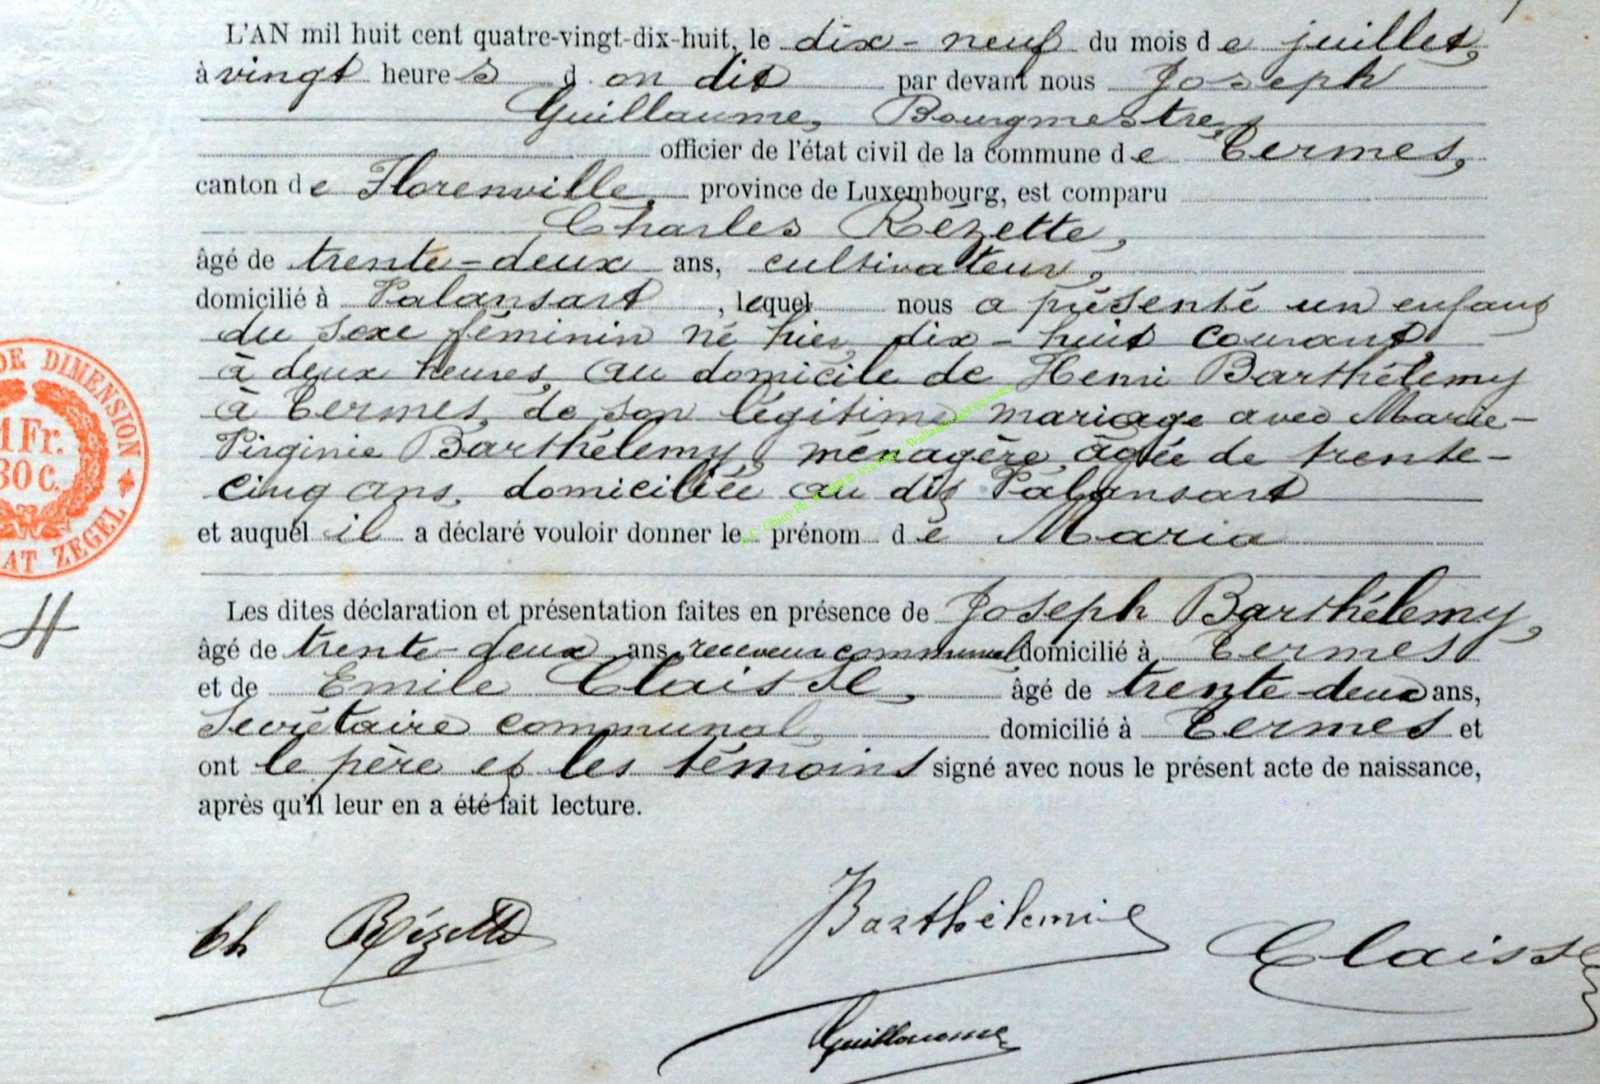 L'AN mil huit cent quatre-vingt-dix-huit, le dix-neuf du mois de juillet,
à vingt heures d on dit par devant nous Joseph
Guillaume, Bourgmestre,
officier de l'état civil de la commune de Termes,
canton de Florenville, province de Luxembourg, est comparu
Charles Rézette,
âgé de trente-deux ans, cultivateur,
domicilié à Palansart, lequel nous a présenté un enfant
du sexe féminin né hier, dix-huit courant,
à deux heures, au domicile de Henri Barthélemy
à Termes, de son légitime mariage avec Marie-
Virginie Barthélemy, ménagère, âgée de trente-
cinq ans, domiciliée au dit Palansart
et auquel il a déclaré vouloir donner le prénom de Maria
Les dites déclaration et présentation faites en présence de Joseph Barthélemy,
âgé de trente-deux ans, receveur communal domicilié à Termes
et de Emile Claisse, âgé de trente-deux ans,
Secrétaire communal, domicilié à Termes et
ont le père et les témoins signé avec nous le présent acte de naissance,
après qu'il leur en a été fait lecture.
DE DIMENSION
1 Fr.
30 C.
AT ZEGEL
H
Ch Rézette
Barthélemi
Claisse
Guillaume